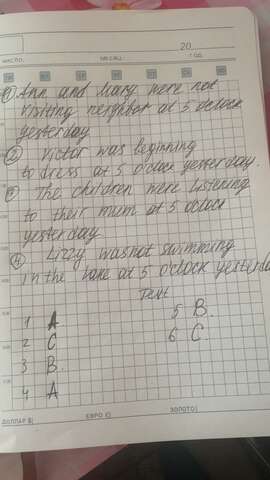 20
ЧИСЛО
МЕСЯЦ
ГОД
① Ann and Mary were not
visiting neighbor at 5 o'clock
yesterday
② Victor was beginning
to dress at 5 o'clock yesterday.
The children were listening
to their mum at 5 o'clock
yesterday
④ Lizzy was not swimming
in the lake at 5 o'clock yesterday
Text
1 A
2 C
3 B.
4 A
5 B.
6 C.
ДОЛЛАР $)
ЕВРО €)
ЗОЛОТО)